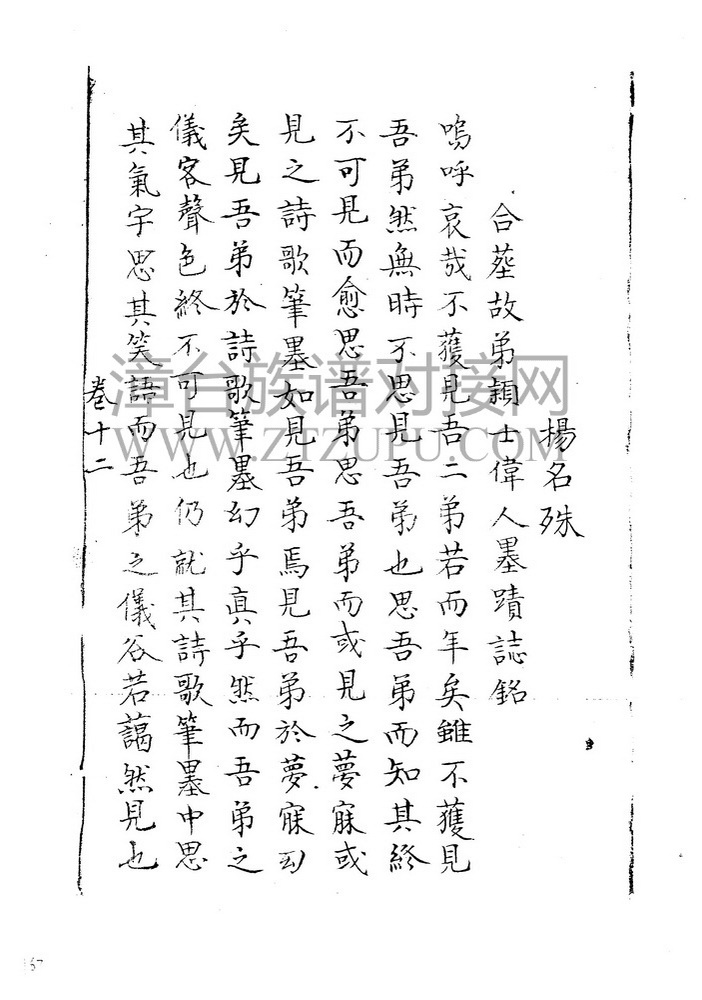 楊名殊
合塟故弟穎士偉人墨蹟誌銘
嗚呼哀哉不獲見吾二弟若而年矣雖不獲見
吾弟然無時不思見吾弟也思吾弟而知其終
不可見而愈思吾弟思吾弟而或見之夢寐或
見之詩歌筆墨如見吾弟焉見吾弟於夢寐幻
矣見吾弟於詩歌筆墨幻乎真乎然而吾弟之
儀客聲色終不可見也仍就其詩歌筆墨中思
其氣宇思其笑語而吾弟之儀谷若藹然見也
卷十二
漳台族谱对接网
WWW.ZTZUPU.COM
67